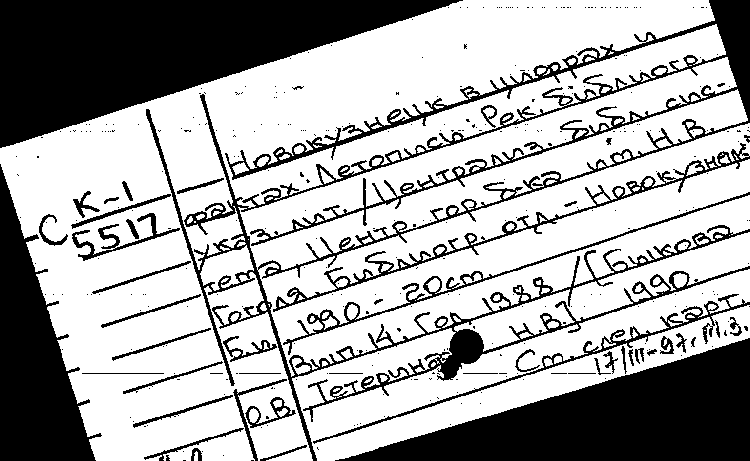 Новокузнецк в цифрах и
С К-1
5517
фактах: Летопись: Рек. библиогр.
указ. лит. / Централиз. библ. сис-
тема, Центр. гор. б-ка им. Н.В.
Гоголя. Библиогр. отд. - Новокузнецк:
Б.и., 1990. - 20см.
Вып. 14: Год 1988 / [Быкова
О.В., Тетерина Н.В]. 1990.
См. след. карт.
17/III-97.